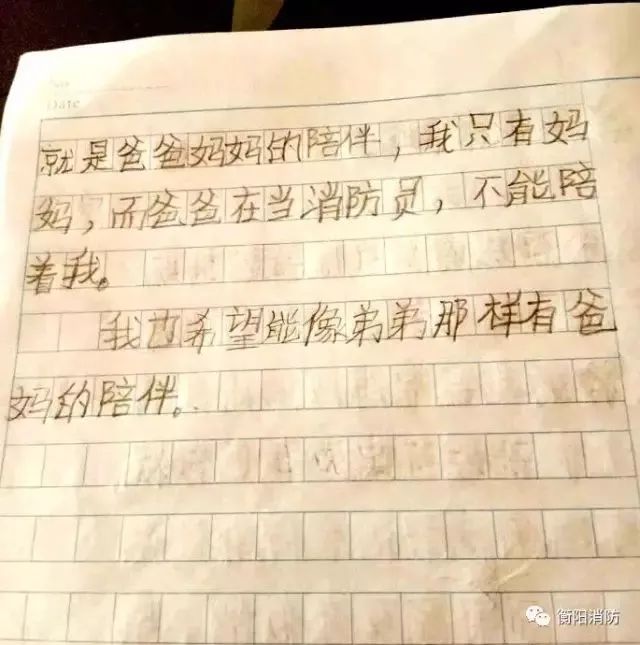 Date
就是爸爸妈妈的陪伴，我只有妈
妈，而爸爸在当消防员，不能陪
着我。
我希望能像弟弟那样有爸
妈的陪伴。
衡阳消防